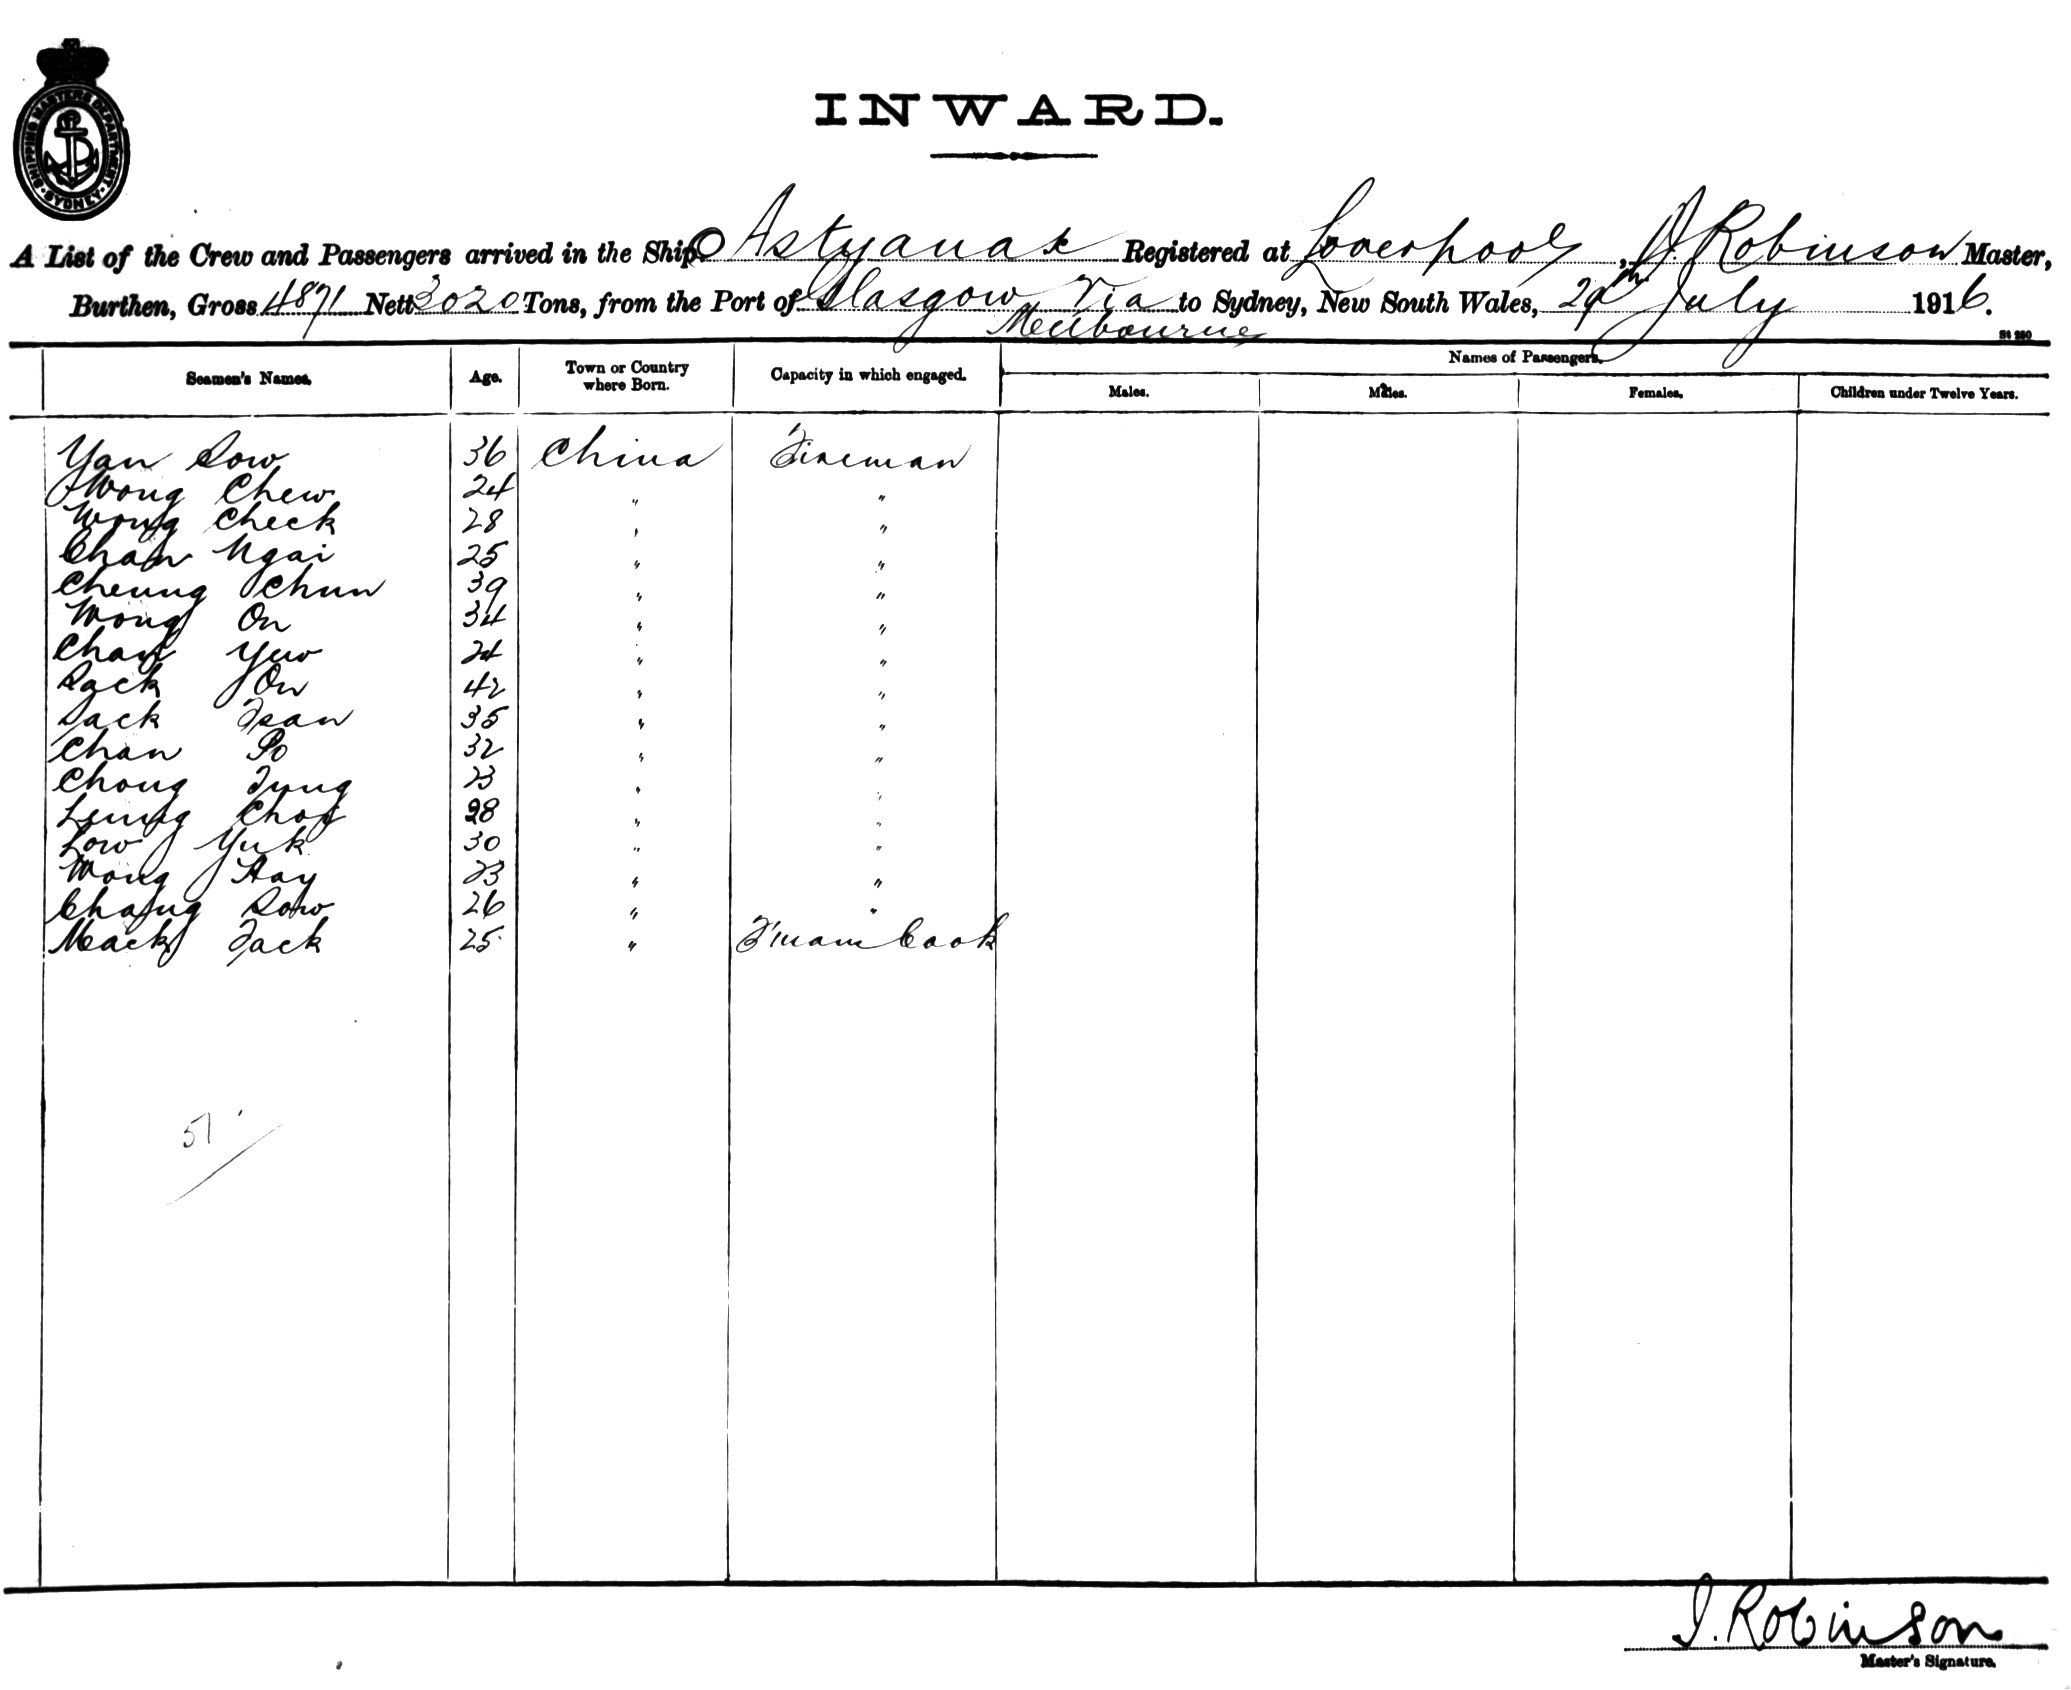 SHIPPING MASTERS DEPARTMENT · SYDNEY ·
INWARD.
A List of the Crew and Passengers arrived in the Ship Astyanax Registered at Liverpool, J. Robinson Master,
Burthen, Gross 4871 Nett 3020 Tons, from the Port of Glasgow Via Melbourne to Sydney, New South Wales, 29th July 1916.
St 250
Seamen's Names. Age. Town or Country where Born. Capacity in which engaged. Names of Passengers.
Males. Males. Females. Children under Twelve Years.
Yan Sow 36 China Fireman
Wong Chew 24 " "
Wong Check 28 " "
Chan Ngai 25 " "
Cheung Chun 39 " "
Wong On 34 " "
Chan Yew 24 " "
Sack On 42 " "
Jack Tsan 35 " "
Chan Po 32 " "
Chong Tung 23 " "
Leung Choy 28 " "
Low Yuk 30 " "
Wong Hay 23 " "
Chang Sow 26 " "
Mack Jack 25 " F'mans Cook
51
J. Robinson
Master's Signature.